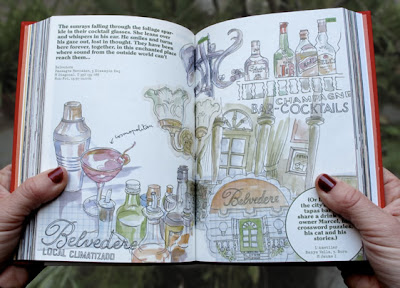 The sunrays falling through the foliage spar-
kle in their cocktail glasses. She leans over
and whispers in his ear. He smiles and turns
his gaze out, lost in thought. They have been
here forever, together, in this enchanted place
where sound from the outside world can't
reach them...
Belvedere
Cosmopolitan
Belvedere
LOCAL CLIMATIZADO
CHAMPAGNE
BAR-COCKTAILS
Belvedere
(Or
the city
tapas
share a drink
owner Marcel,
crossword puzzles,
his cat and his
stories.)